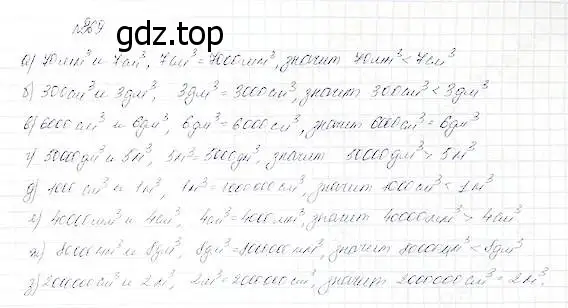 №969
gdz.top
а) 70мм³ и 7см³, 7см³ = 7000мм³, значит 70мм³ < 7см³
б) 300см³ и 3дм³, 3дм³ = 3000см³, значит 300см³ < 3дм³
в) 6000см³ и 6дм³, 6дм³ = 6000см³, значит 6000см³ = 6дм³
г) 50000дм³ и 5м³, 5м³ = 5000дм³, значит 50000дм³ > 5м³
д) 1000 см³ и 1м³, 1м³ = 1000000см³, значит 1000см³ < 1м³
е) 40000мм³ и 4см³, 4см³ = 4000мм³, значит 40000мм³ > 4см³
ж) 80000мм³ и 8дм³, 8дм³ = 8000000мм³, значит 80000мм³ < 8дм³
з) 2000000см³ и 2м³, 2м³ = 2000000см³, значит 2000000см³ = 2м³.